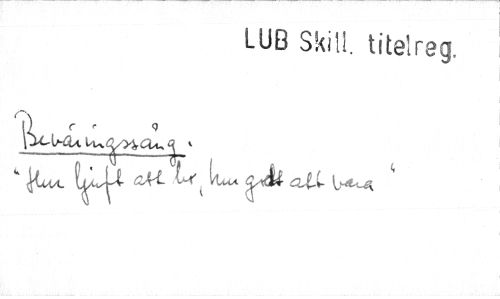 LUB Skill. titelreg.
Beväringssång.
"Hur ljuft att le, hur godt att vara"